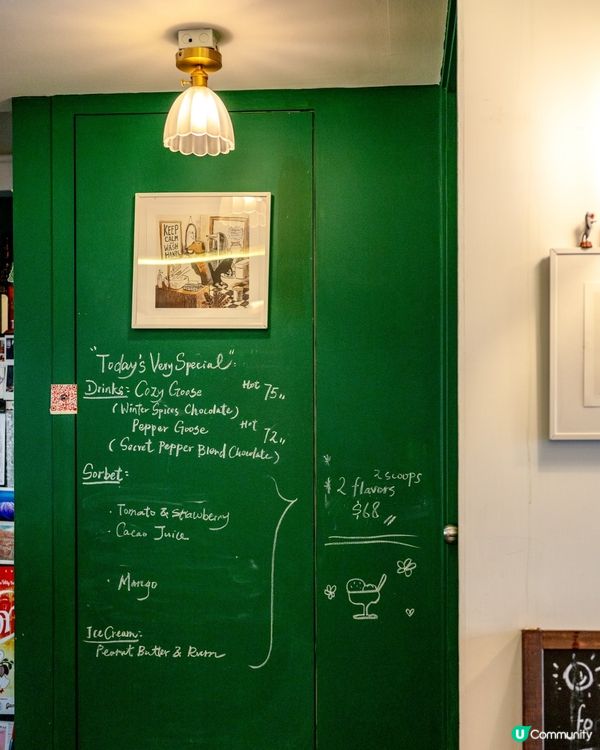 KEEP
CALM
AND
WASH
HANDS
"Today's Very Special":
Drinks: Cozy Goose Hot 75,,
(Winter Spices Chocolate)
Pepper Goose Hot 72,,
(Secret Pepper Blend Chocolate)
Sorbet:
· Tomato & Strawberry
· Cacao Juice
· Mango
Ice Cream:
Peanut Butter & Rum
2 scoops
* 2 flavors
$68,,
fo
U Community